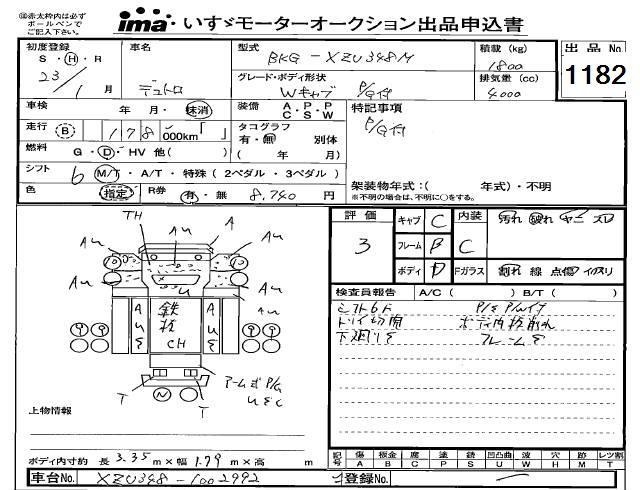 ㊟赤太枠内は必ず
ボールペンで
ご記入下さい。
ima いすゞモーターオークション出品申込書
初度登録 車名 型式 BKG-XZU348M 積載(kg) 出品No.
S・H・R 1800
23/1月 デュトロ グレード・ボディ形状 排気量(cc) 1182
Wキャブ P/G付 4000
車検 年 月・抹消 装備 A・P・P C・S・W 特記事項
走行 B 178,000km「 」 タコグラフ P/G付
有・無 別体
燃料 G・D・HV 他( ) ( 年 月)
シフト 6 M/T・A/T・特殊(2ペダル・3ペダル) 架装物年式:( 年式)・不明
色 指定 R券 有・無 8,740円 ※不明の場合は、不明に○をする。
評価 キャブ C 内装 汚れ 破れ ヤニ スレ
3 フレーム B C
ボディ D Fガラス 割れ 線 点傷 イタズリ
検査員報告 A/C( ) B/T( )
シフト6F P/S P/Wイブ
下廻りS フレームS
TH AU A AU
AU AU
AU
鉄板 CH
T T N
上物情報
ボディ内寸約 長 3.35m×幅 1.79m×高 m
記号 傷 A 板金 B 腐 C 塗 P 錆 S 凹凸曲 U 波 W 穴 H 跡 M レツ割 T
車台No. XZU348-1002992 登録No.